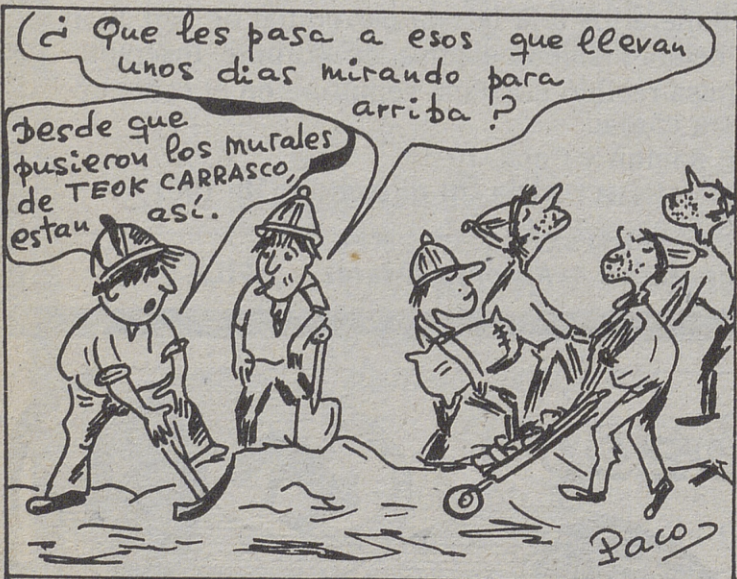 ¿ Que les pasa a esos que llevan
unos dias mirando para
arriba ?
Desde que
pusieron los murales
de TEOK CARRASCO,
estan así.
Paco